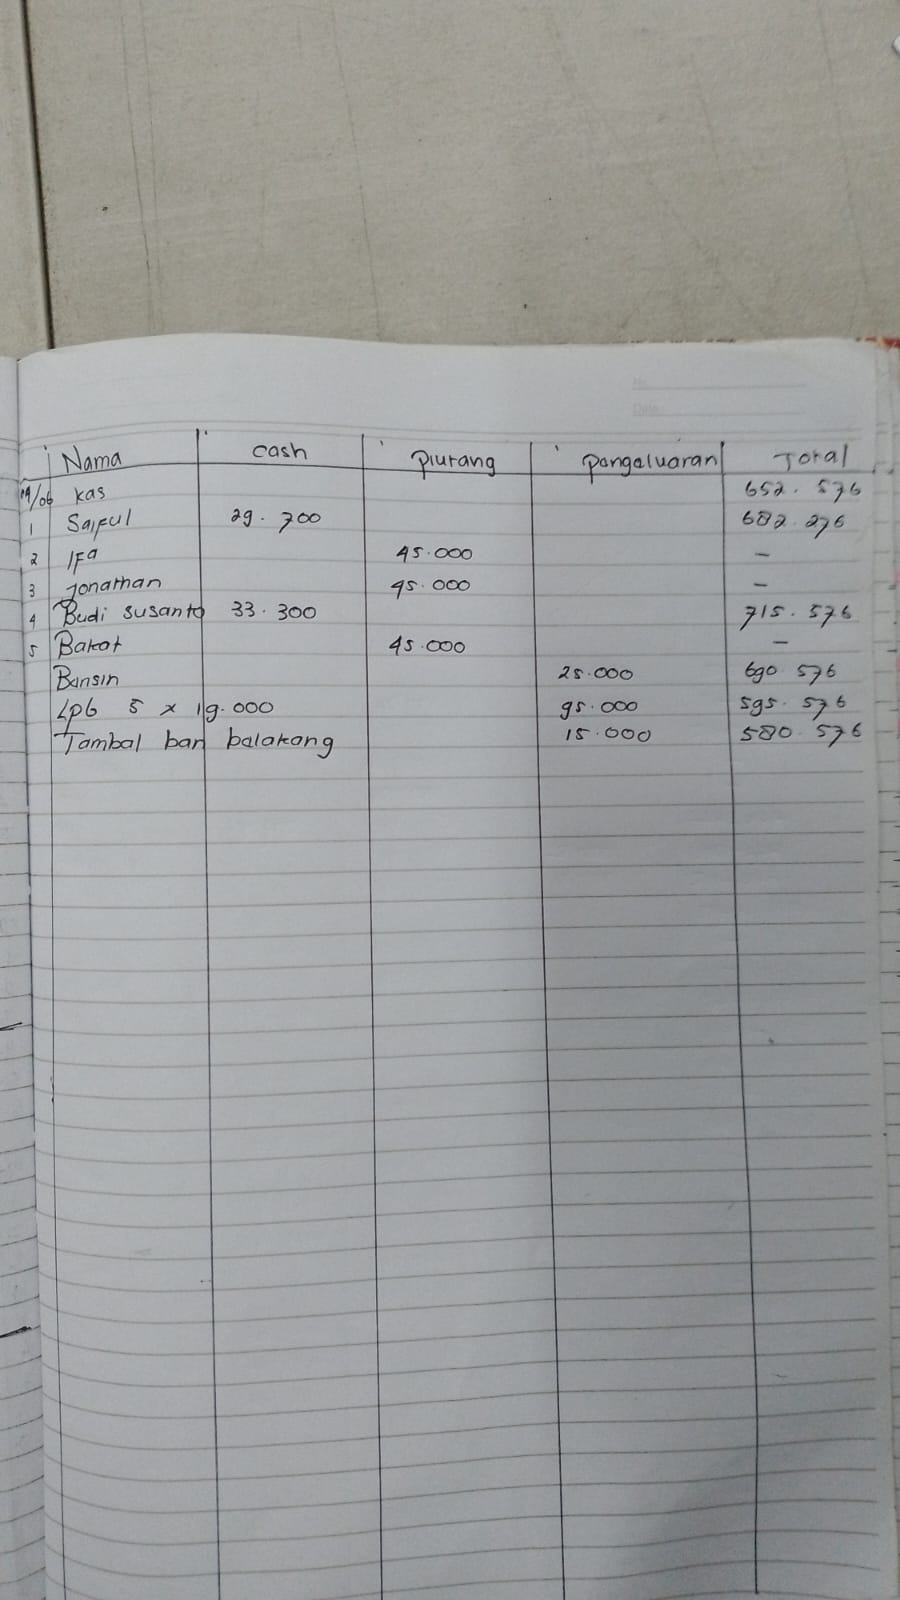 No
Date
Nama cash piutang pengeluaran Total
19/06 kas 652.576
1 Saiful 29.700 682.276
2 Ifa 45.000 -
3 Jonathan 45.000 -
4 Budi susanto 33.300 715.576
5 Baket 45.000 -
Bensin 25.000 690 576
LPG 5 x 19.000 95.000 595.576
Tambal ban belakang 15.000 580.576